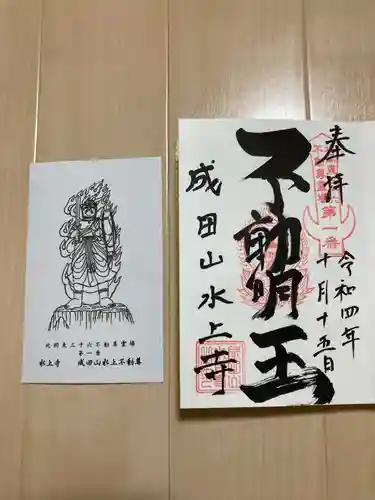 北関東三十六不動尊霊場
第一番
水上寺 成田山水上不動尊
奉拝
第一番
令和四年
十月十五日
不動明王
成田山水上寺